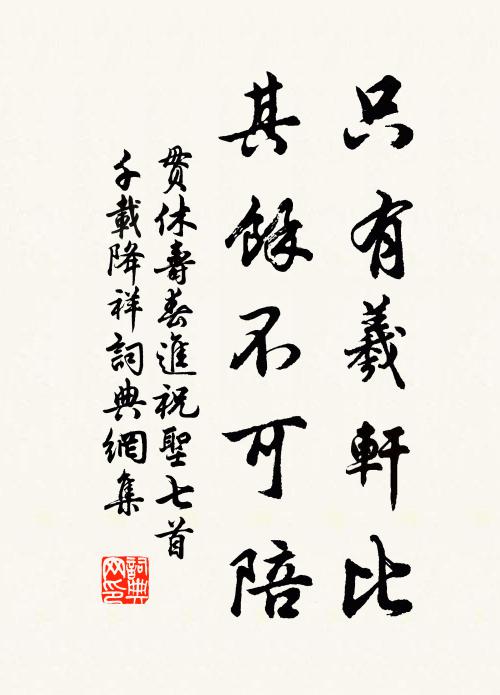 只有羲軒比
其餘不可陪
貫休壽春進祝聖七首
千載降祥詞典網集
詞典网印